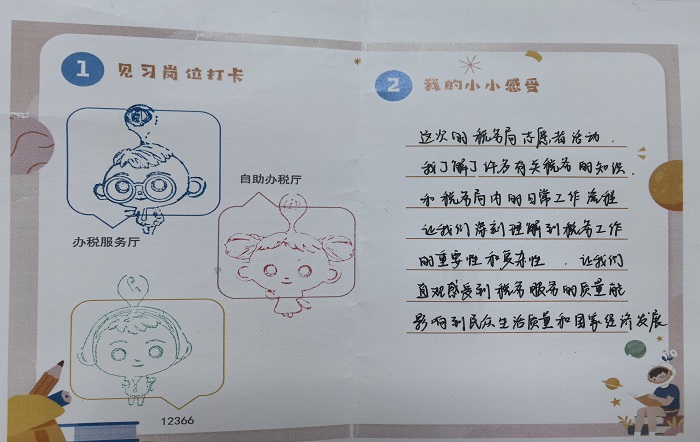 1 见习岗位打卡
自助办税厅
办税服务厅
12366
2 我的小小感受
这次的税务局志愿者活动.
我了解了许多有关税务的知识.
和税务局内的日常工作流程
让我们深刻理解到税务工作
的重要性和复杂性. 让我们
直观感受到税务服务的质量能
影响到民众生活质量和国家经济发展